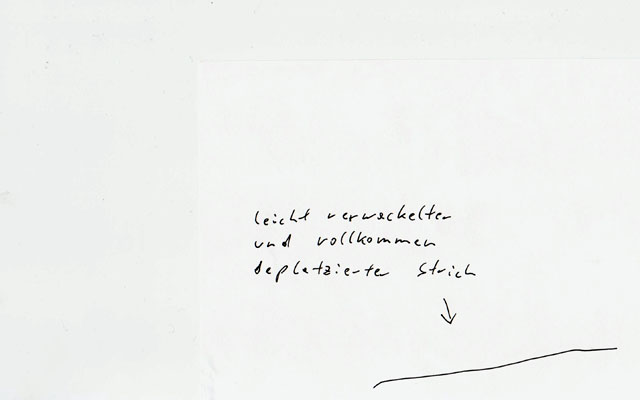 leicht verwackelter
und vollkommen
deplatzierter Strich